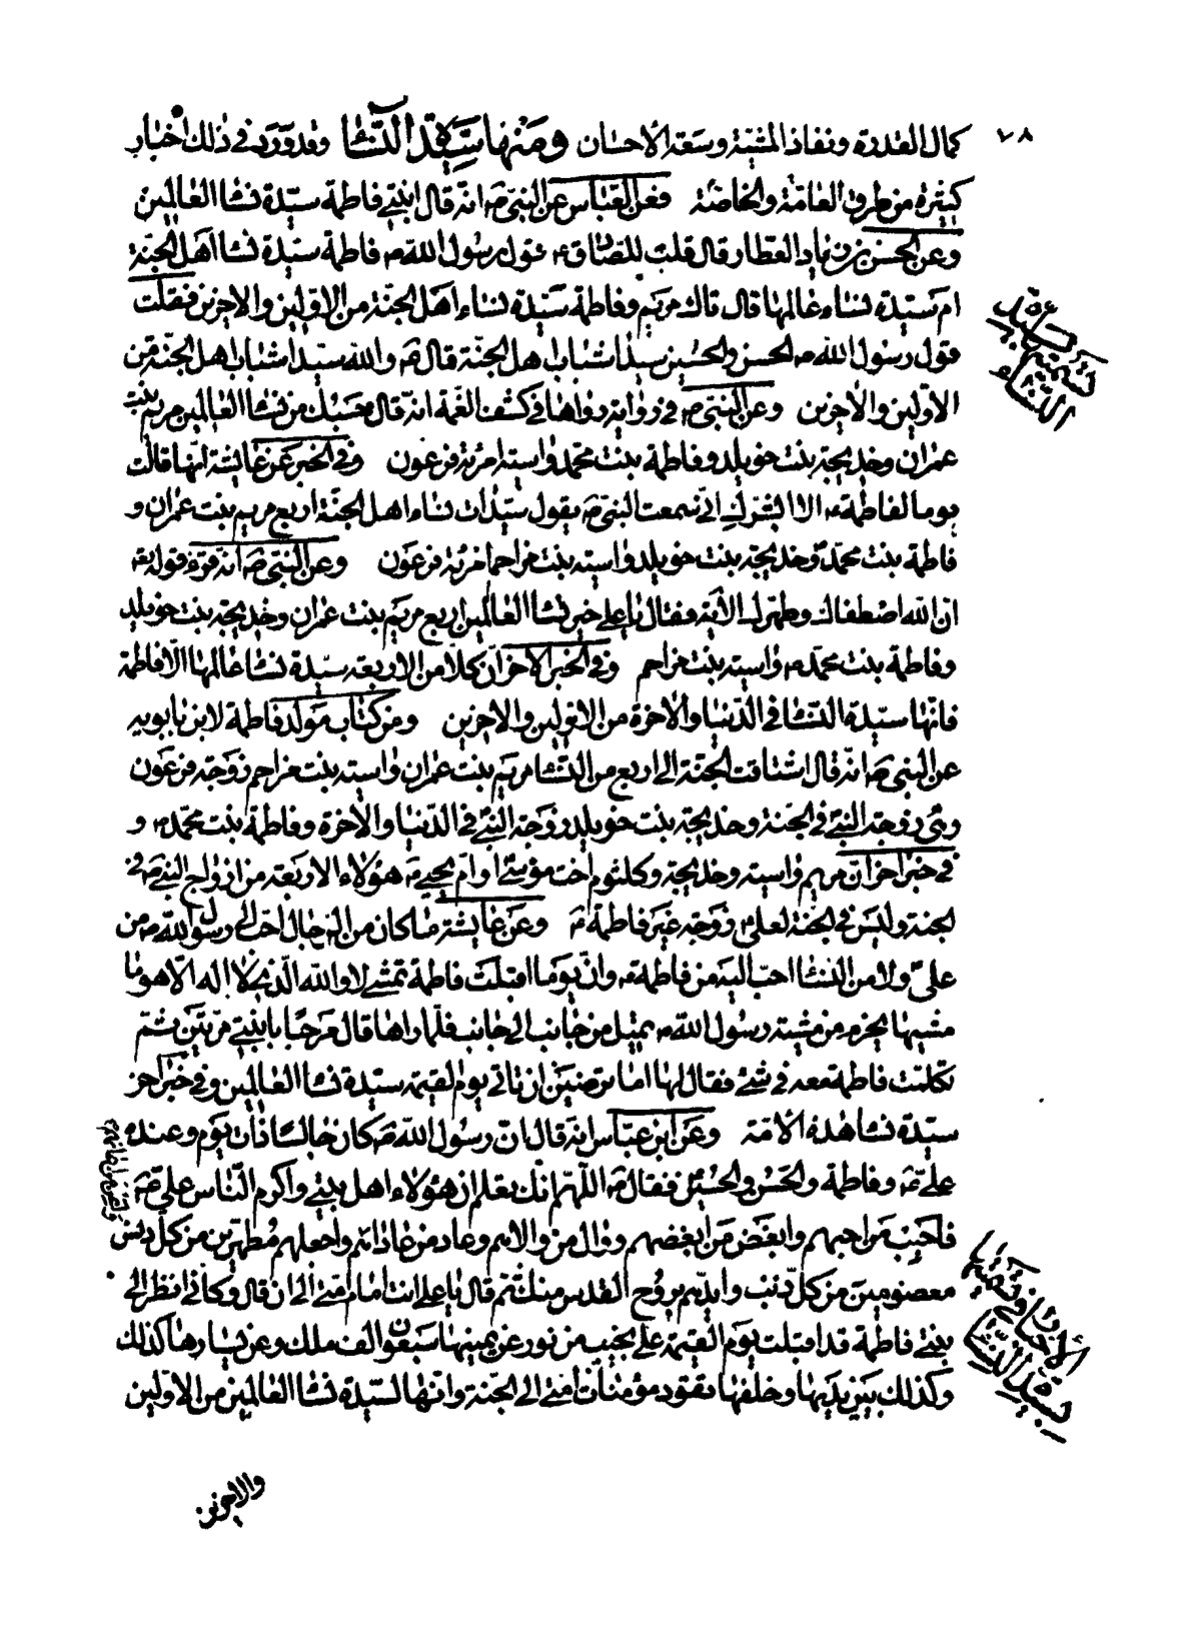 ٧٨
كمال القدرة ونفاذ المشية وسعة الاحسان ومنها سيدة النساء وقد ورد في ذلك اخبار
كثيرة من طرق العامة والخاصة فعن العباس عن النبي ص انه قال ابنتي فاطمة سيدة نساء العالمين
وعن الحسن بن زياد العطار قال قلت للصادق ع قول رسول الله ص فاطمة سيدة نساء اهل الجنة
ام سيدة نساء عالمها قال ذاك مريم وفاطمة سيدة نساء اهل الجنة من الاولين والاخرين فقلت
فقول رسول الله ص الحسن والحسين سيدا شباب اهل الجنة قال هما والله سيدا شباب اهل الجنة من
الاولين والاخرين وعن النبي ص في رواية رواها في كشف الغمة انه قال حسبك من نساء العالمين مريم بنت
عمران وخديجة بنت خويلد وفاطمة بنت محمد واسية امرأة فرعون وفي الخبر عن عايشة انها قالت
يوما لفاطمة ع الا ابشرك اني سمعت النبي ص يقول سيدات نساء اهل الجنة اربع مريم بنت عمران و
فاطمة بنت محمد وخديجة بنت خويلد واسية بنت مزاحم امرأة فرعون وعن النبي ص انه قرء قوله تع
ان الله اصطفاك وطهرك الاية وفقال يا علي خير نساء العالمين اربع مريم بنت عمران وخديجة بنت خويلد
وفاطمة بنت محمد ص واسية بنت مزاحم وفي الخبر الاخر ان كلا من الاربعة سيدة نساء عالمها الا فاطمة
فانها سيدة النساء في الدنيا والاخرة من الاولين والاخرين ومن كتاب مولد فاطمة لابن بابويه
عن النبي ص انه قال اشتاقت الجنة الى اربع من النساء مريم بنت عمران واسية بنت مزاحم زوجة فرعون
وهي زوجة النبي في الجنة وخديجة بنت خويلد زوجة النبي في الدنيا والاخرة وفاطمة بنت محمد ص و
في خبر اخر ان مريم واسية وخديجة وكلثوم اخت موسى او ام يحيى ع هؤلاء الاربعة من ازواج النبي ص في
الجنة وليس في الجنة لعلي ع زوجة غير فاطمة ع وعن عايشة ما كان من الرجال احب الى رسول الله ص من
علي ولا من النساء احب اليه من فاطمة ع وان يوما اقبلت فاطمة تمشي لا والله الذي لا اله الا هو ما
مشيها يخرم من مشية رسول الله ص يميل من جانب الى جانب فلما راها قال مرحبا بابنتي مرتين ثم
تكلمت فاطمة معه في شئ فقال لها اما ترضين ان تاتي يوم القيمة سيدة نساء العالمين وفي خبر اخر
سيدة نساء هذه الامة وعن ابن عباس انه قال ان رسول الله ص كان جالسا ذات يوم وعنده
علي ع وفاطمة والحسن والحسين فقال ص اللهم انك تعلم ان هؤلاء اهل بيتي واكرم الناس علي ص
فاحبب من احبهم وابغض من ابغضهم ووال من والاهم وعاد من عاداهم واجعلهم مطهرين من كل دنس
معصومين من كل ذنب وايدهم بروح القدس منك ثم قال يا علي انت امام امتي الى ان قال وكاني انظر الى
بنتي فاطمة قد اقبلت يوم القيمة على نجيب من نور عن يمينها سبعون الف ملك وعن يسارها كذلك
وكذلك بين يديها وخلفها تقود مؤمنات امتي الى الجنة وانها لسيدة نساء العالمين من الاولين
والاخرين
النساء
الاخبار في تسميتها
بسيدة النساء